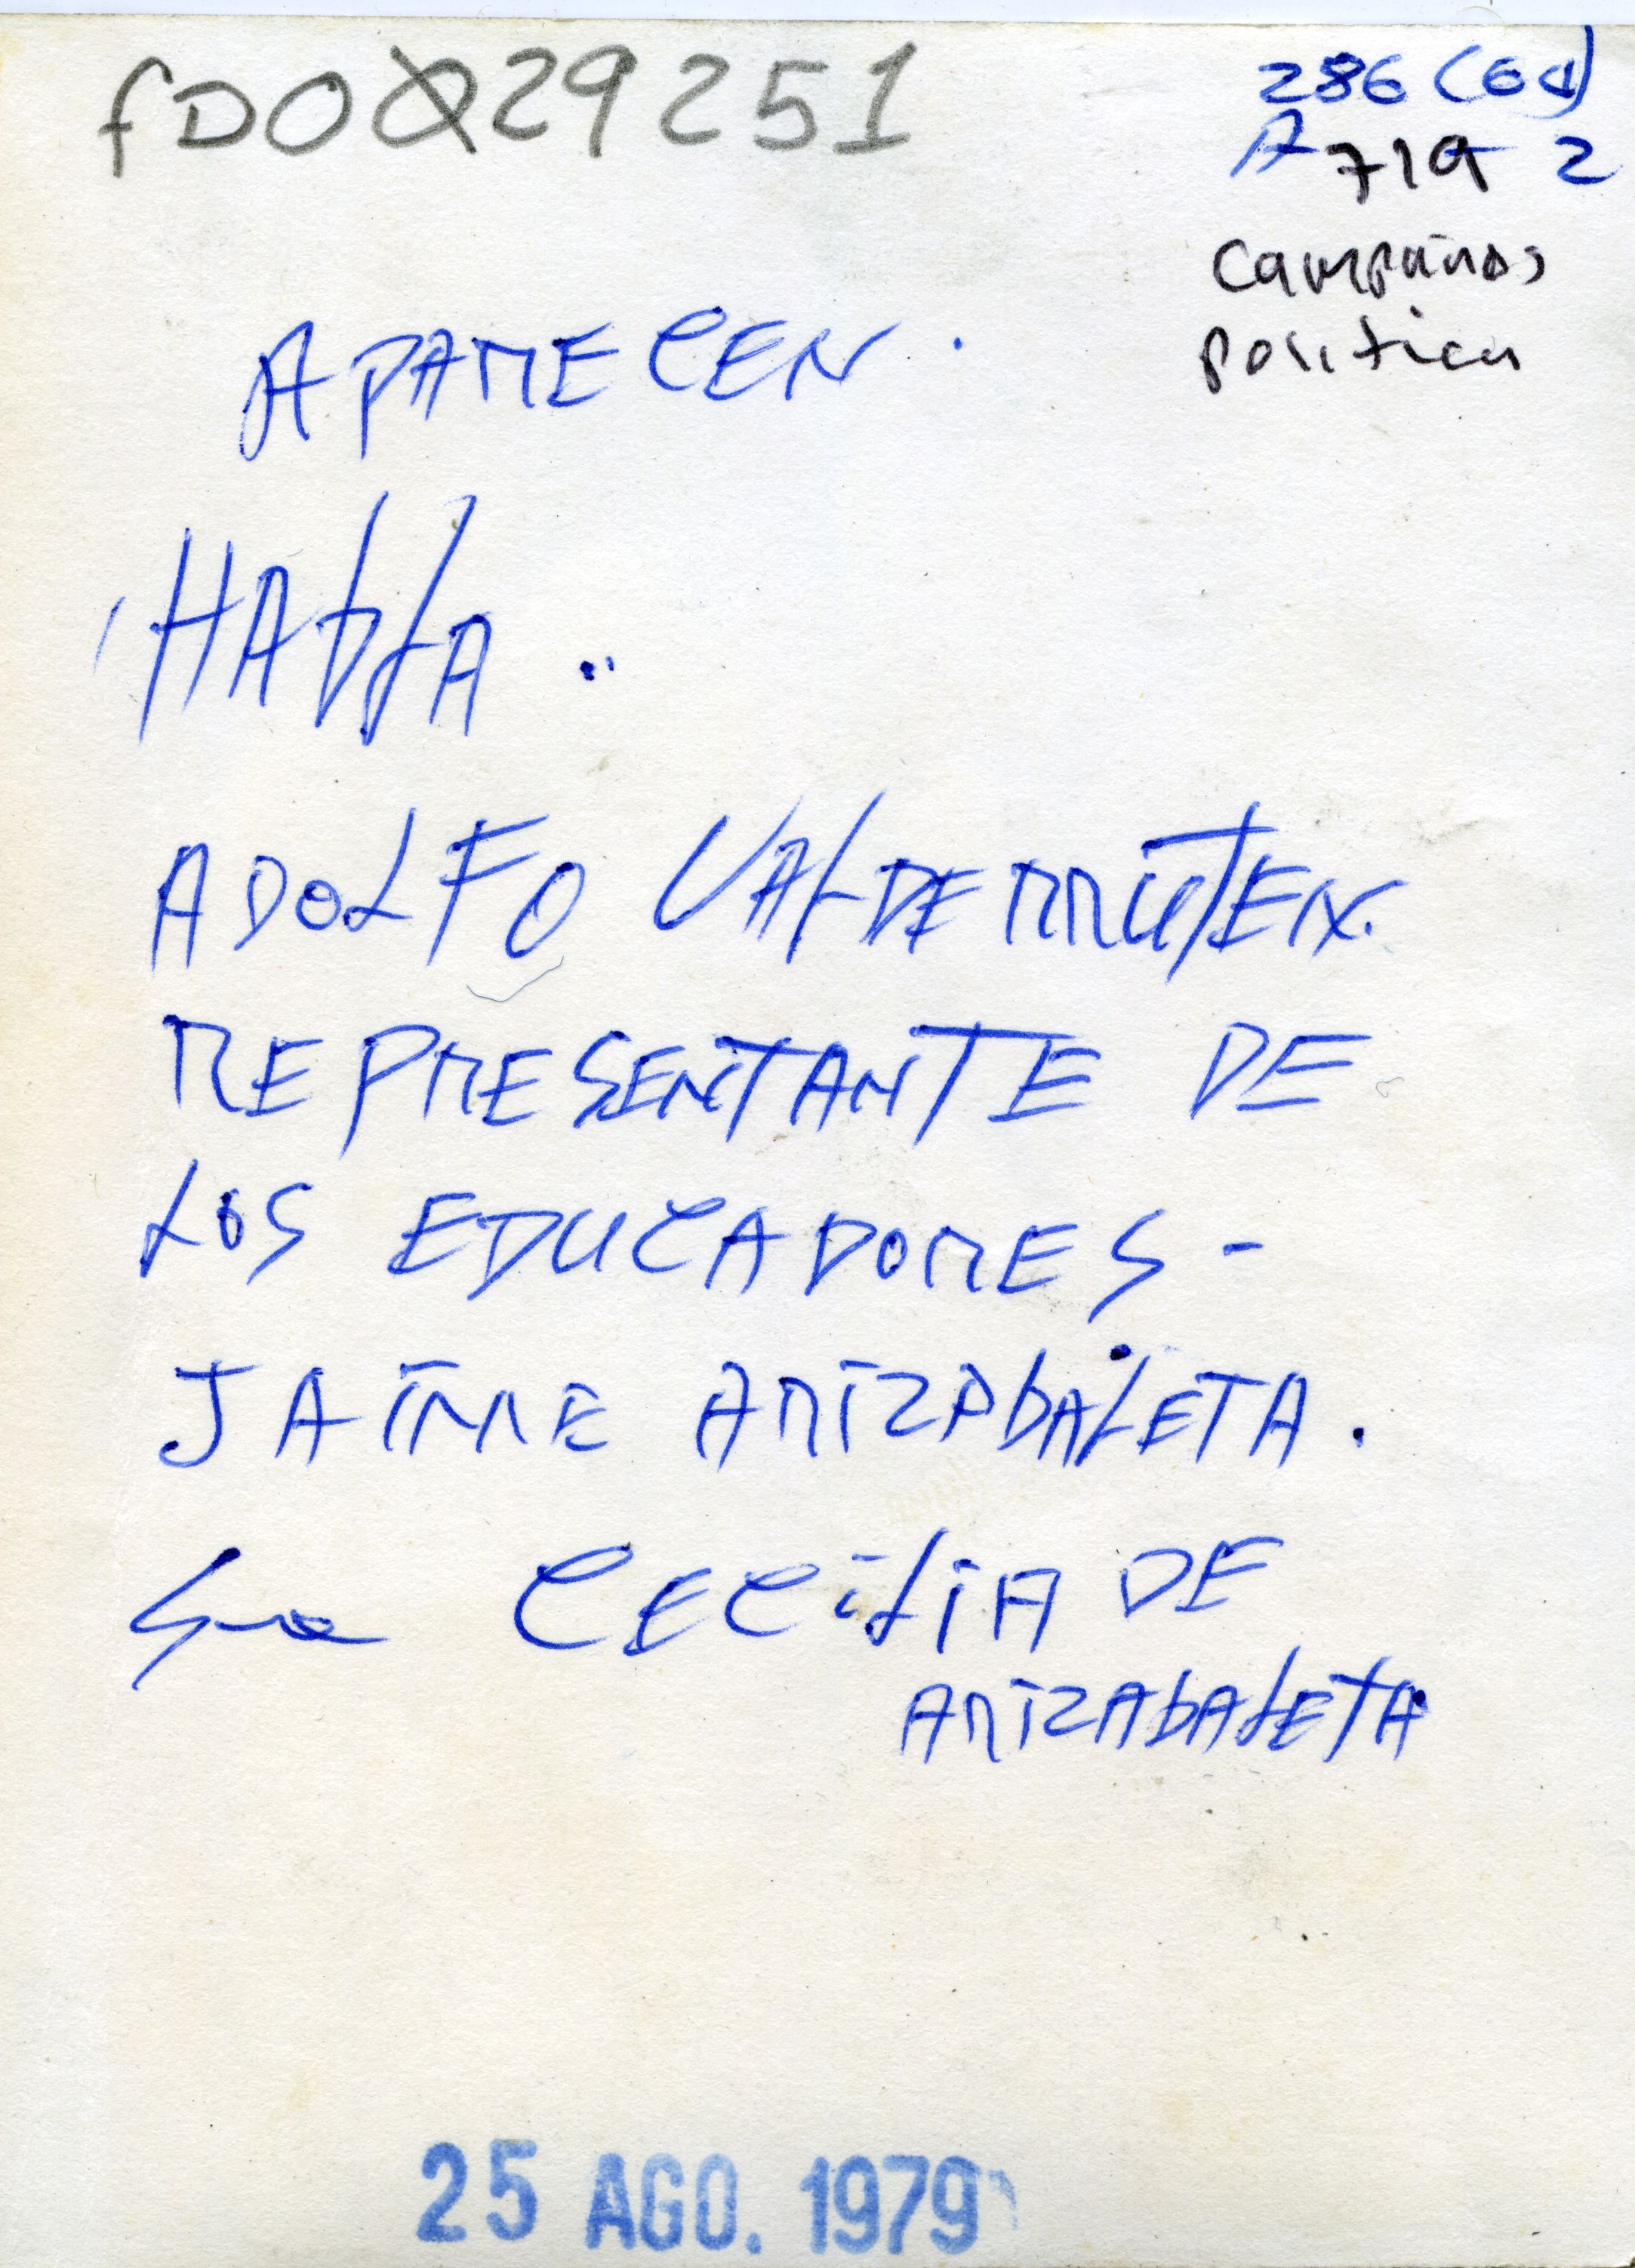 fDO029251
286 (Gd)
A 719 2
Campañas
política
APARECEN.
HABLA..
ADOLFO VALDERRUTEN.
REPRESENTANTE DE
LOS EDUCADORES-
JAIME ARIZABALETA.
Sra CECILIA DE
ARIZABALETA
25 AGO. 1979